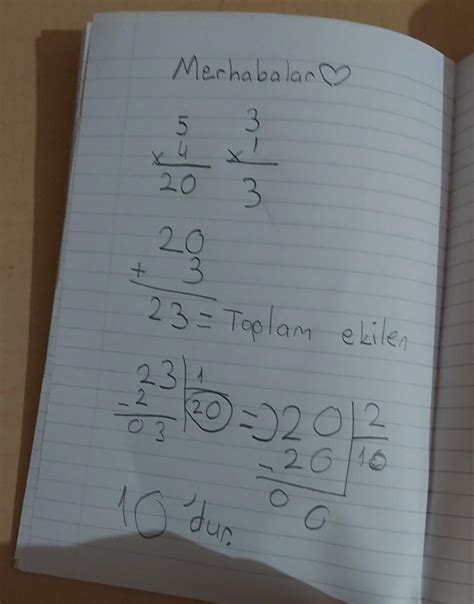 Merhabalar♡
5 3
x4 x1
20 3
20
+ 3
23 = Toplam ekilen
23 1
-2 20 => 20 2
03 -20 10
00
10'dur.